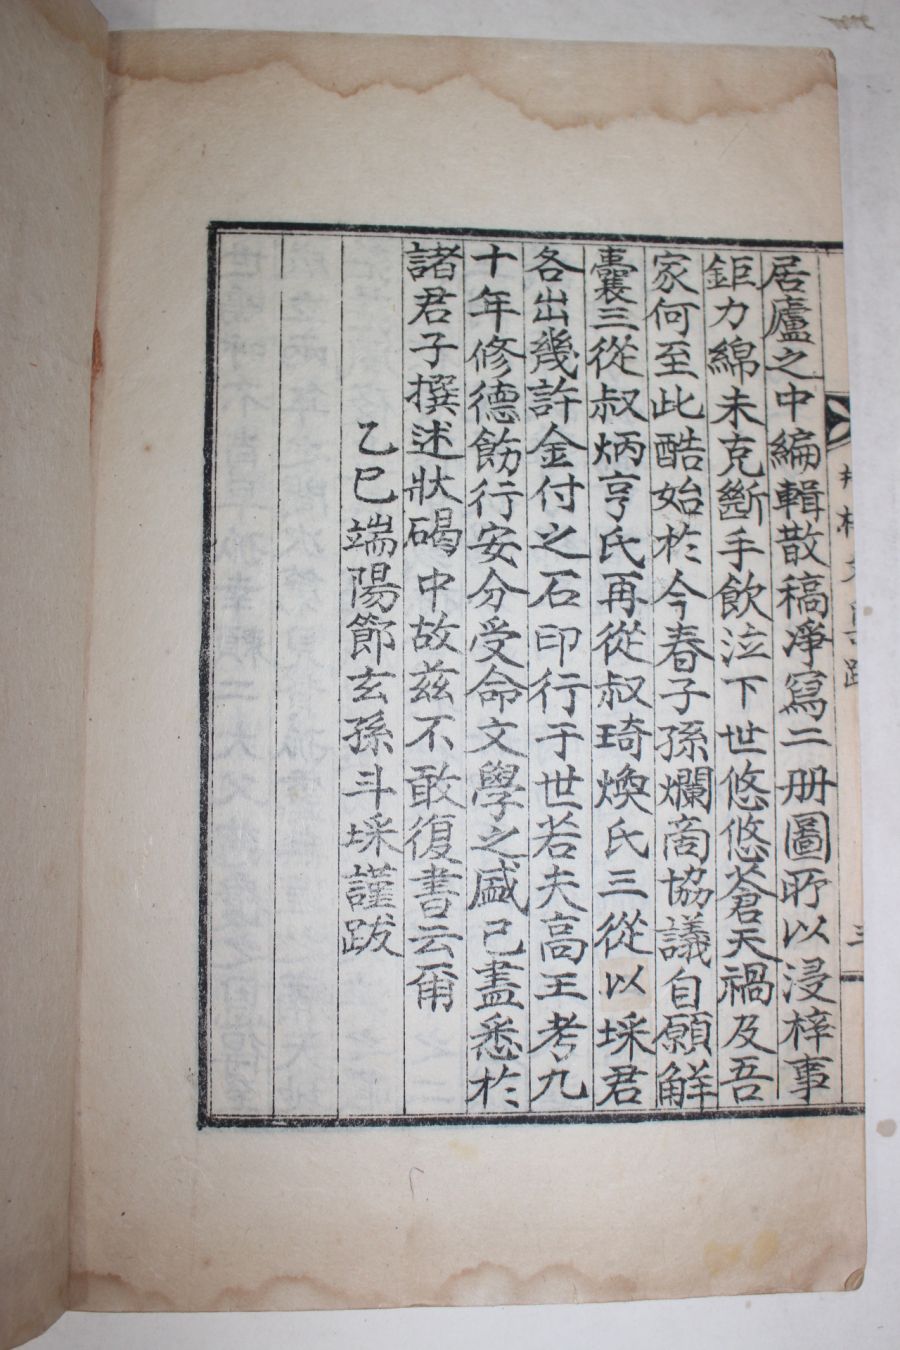 居廬之中編輯散稿凈寫二册圖所以浸梓事
鉅力綿未克斷手飲泣下世悠悠蒼天禍及吾
家何至此酷始於今春子孫爛啇協議自願觧
囊三從叔炳亨氏再從叔琦煥氏三從以埰君
各出幾許金付之石印行于世若夫高王考九
十年修德飭行安分受命文學之盛已盡悉於
諸君子撰述狀碣中故兹不敢復書云爾
乙巳端陽節玄孫斗埰謹跋